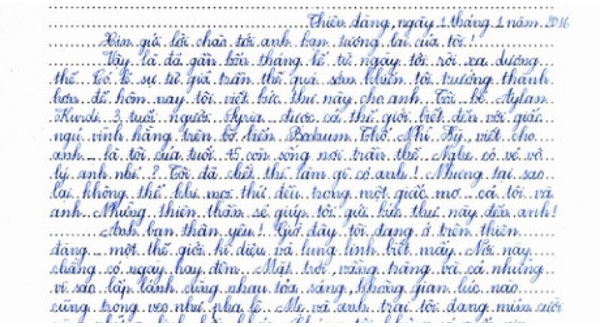 Thiên đàng, ngày 1 tháng 1 năm 2016
Xin gửi lời chào tới anh bạn tương lai của tôi!
Vậy là đã gần bốn tháng kể từ ngày tôi rời xa dương
thế. Có lẽ sự từ giã trần thế quá sớm khiến tôi trưởng thành
hơn để hôm nay tôi viết bức thư này cho anh. Tôi - bé Aylan
Kurdi 3 tuổi người Syria được cả thế giới biết đến với giấc
ngủ vĩnh hằng trên bờ biển Bodrum, Thổ Nhĩ Kỳ, viết cho
anh - là tôi của tuổi 45 còn sống nơi trần thế. Nghe có vẻ vô
lý anh nhỉ? Tôi đã chết thì làm gì có anh! Nhưng tại sao
lại không thể khi mọi thứ đều trong một giấc mơ cả tôi và
anh. Những thiên thần sẽ giúp tôi gửi bức thư này đến anh!
Anh bạn thân yêu! Giờ đây tôi đang ở trên thiên
đàng - một thế giới kì diệu và lung linh biết mấy. Nơi này
chẳng có ngày hay đêm. Mặt trời, vầng trăng và cả những
vì sao lấp lánh cùng nhau tỏa sáng, không gian lúc nào
cũng trong veo như pha lê. Mẹ và anh trai tôi đang mỉm cười